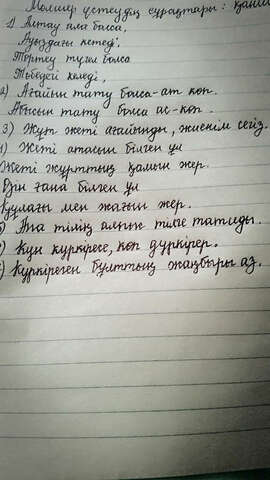 Мөлшер үстеудің сұрақтары: қанша
1) Алтау ала болса,
Ауыздағы кетеді,
Төртеу түгел болса
Төбедегі келеді,
2) Ағайын тату болса-ат көп.
Абысын тату болса ас-көп.
3) Жұт жеті ағайынды, жиенім сегіз.
Жеті атасын білген ұл
Жеті жұрттың қамын жер.
Өзін ғана білген ұл
Құлағы мен жағын жер.
Ана тілің алпыс тілге татиды.
Күн күркіресе, көп дүркірер.
Күркіреген бұлттың жаңбыры аз.